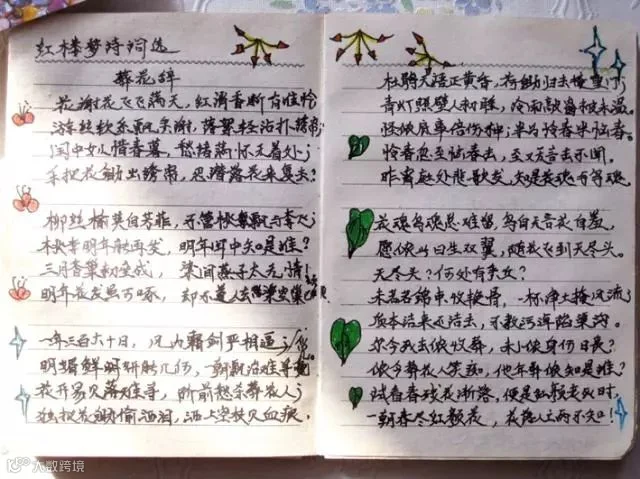 红楼梦诗词选
葬花辞
花谢花飞飞满天，红消香断有谁怜
游丝软系飘 榭，落絮轻沾扑绣帘
闺中女儿惜春暮，愁绪满怀无着处；
手把花锄出绣帘，忍踏落花来复去？
柳丝榆荚自芳菲，不管桃飘与李飞；
桃李明年能再发，明年闺中知是谁？
三月香巢初垒成，梁间燕子太无情！
明年花发虽可啄，却不道人去梁空巢已
一年三百六十日，风刀霜剑严相逼；
明媚鲜妍能几何，一朝飘泊难寻觅
花开易见落难寻，阶前愁杀葬花人；
独把花锄偷洒泪，洒上空枝见血痕。
杜鹃无语正黄昏，荷锄归去掩重门；
青灯照壁人初睡，冷雨敲窗被未温。
怪侬底事倍伤神；半为怜春半恼春。
怜春忽至恼春去，至又无言去不闻。
昨宵庭外悲歌发，知是花魂与鸟魂？
花魂鸟魂总难留，鸟自无言花自羞，
愿侬此日生双翼，随花飞到天尽头。
天尽头？何处有香丘？
未若锦囊收艳骨，一抔净土掩风流；
质本洁来还洁去，不教污淖陷渠沟。
尔今死去侬收葬，未卜侬身何日丧？
侬今葬花人笑痴，他年葬侬知是谁？
试看春残花渐落，便是红颜老死时，
一朝春尽红颜老，花落人亡两不知！
大数跨境